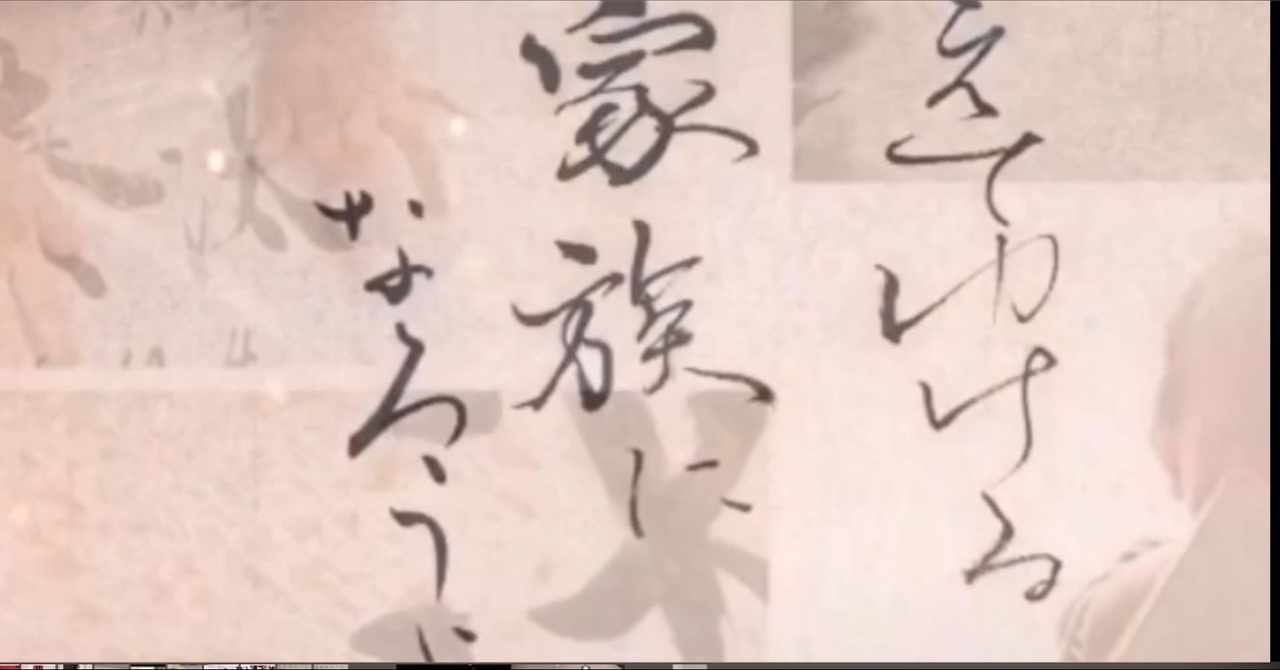 えてゆける
家族に
なろう